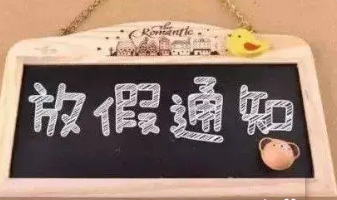 The
Romantic
放假通知